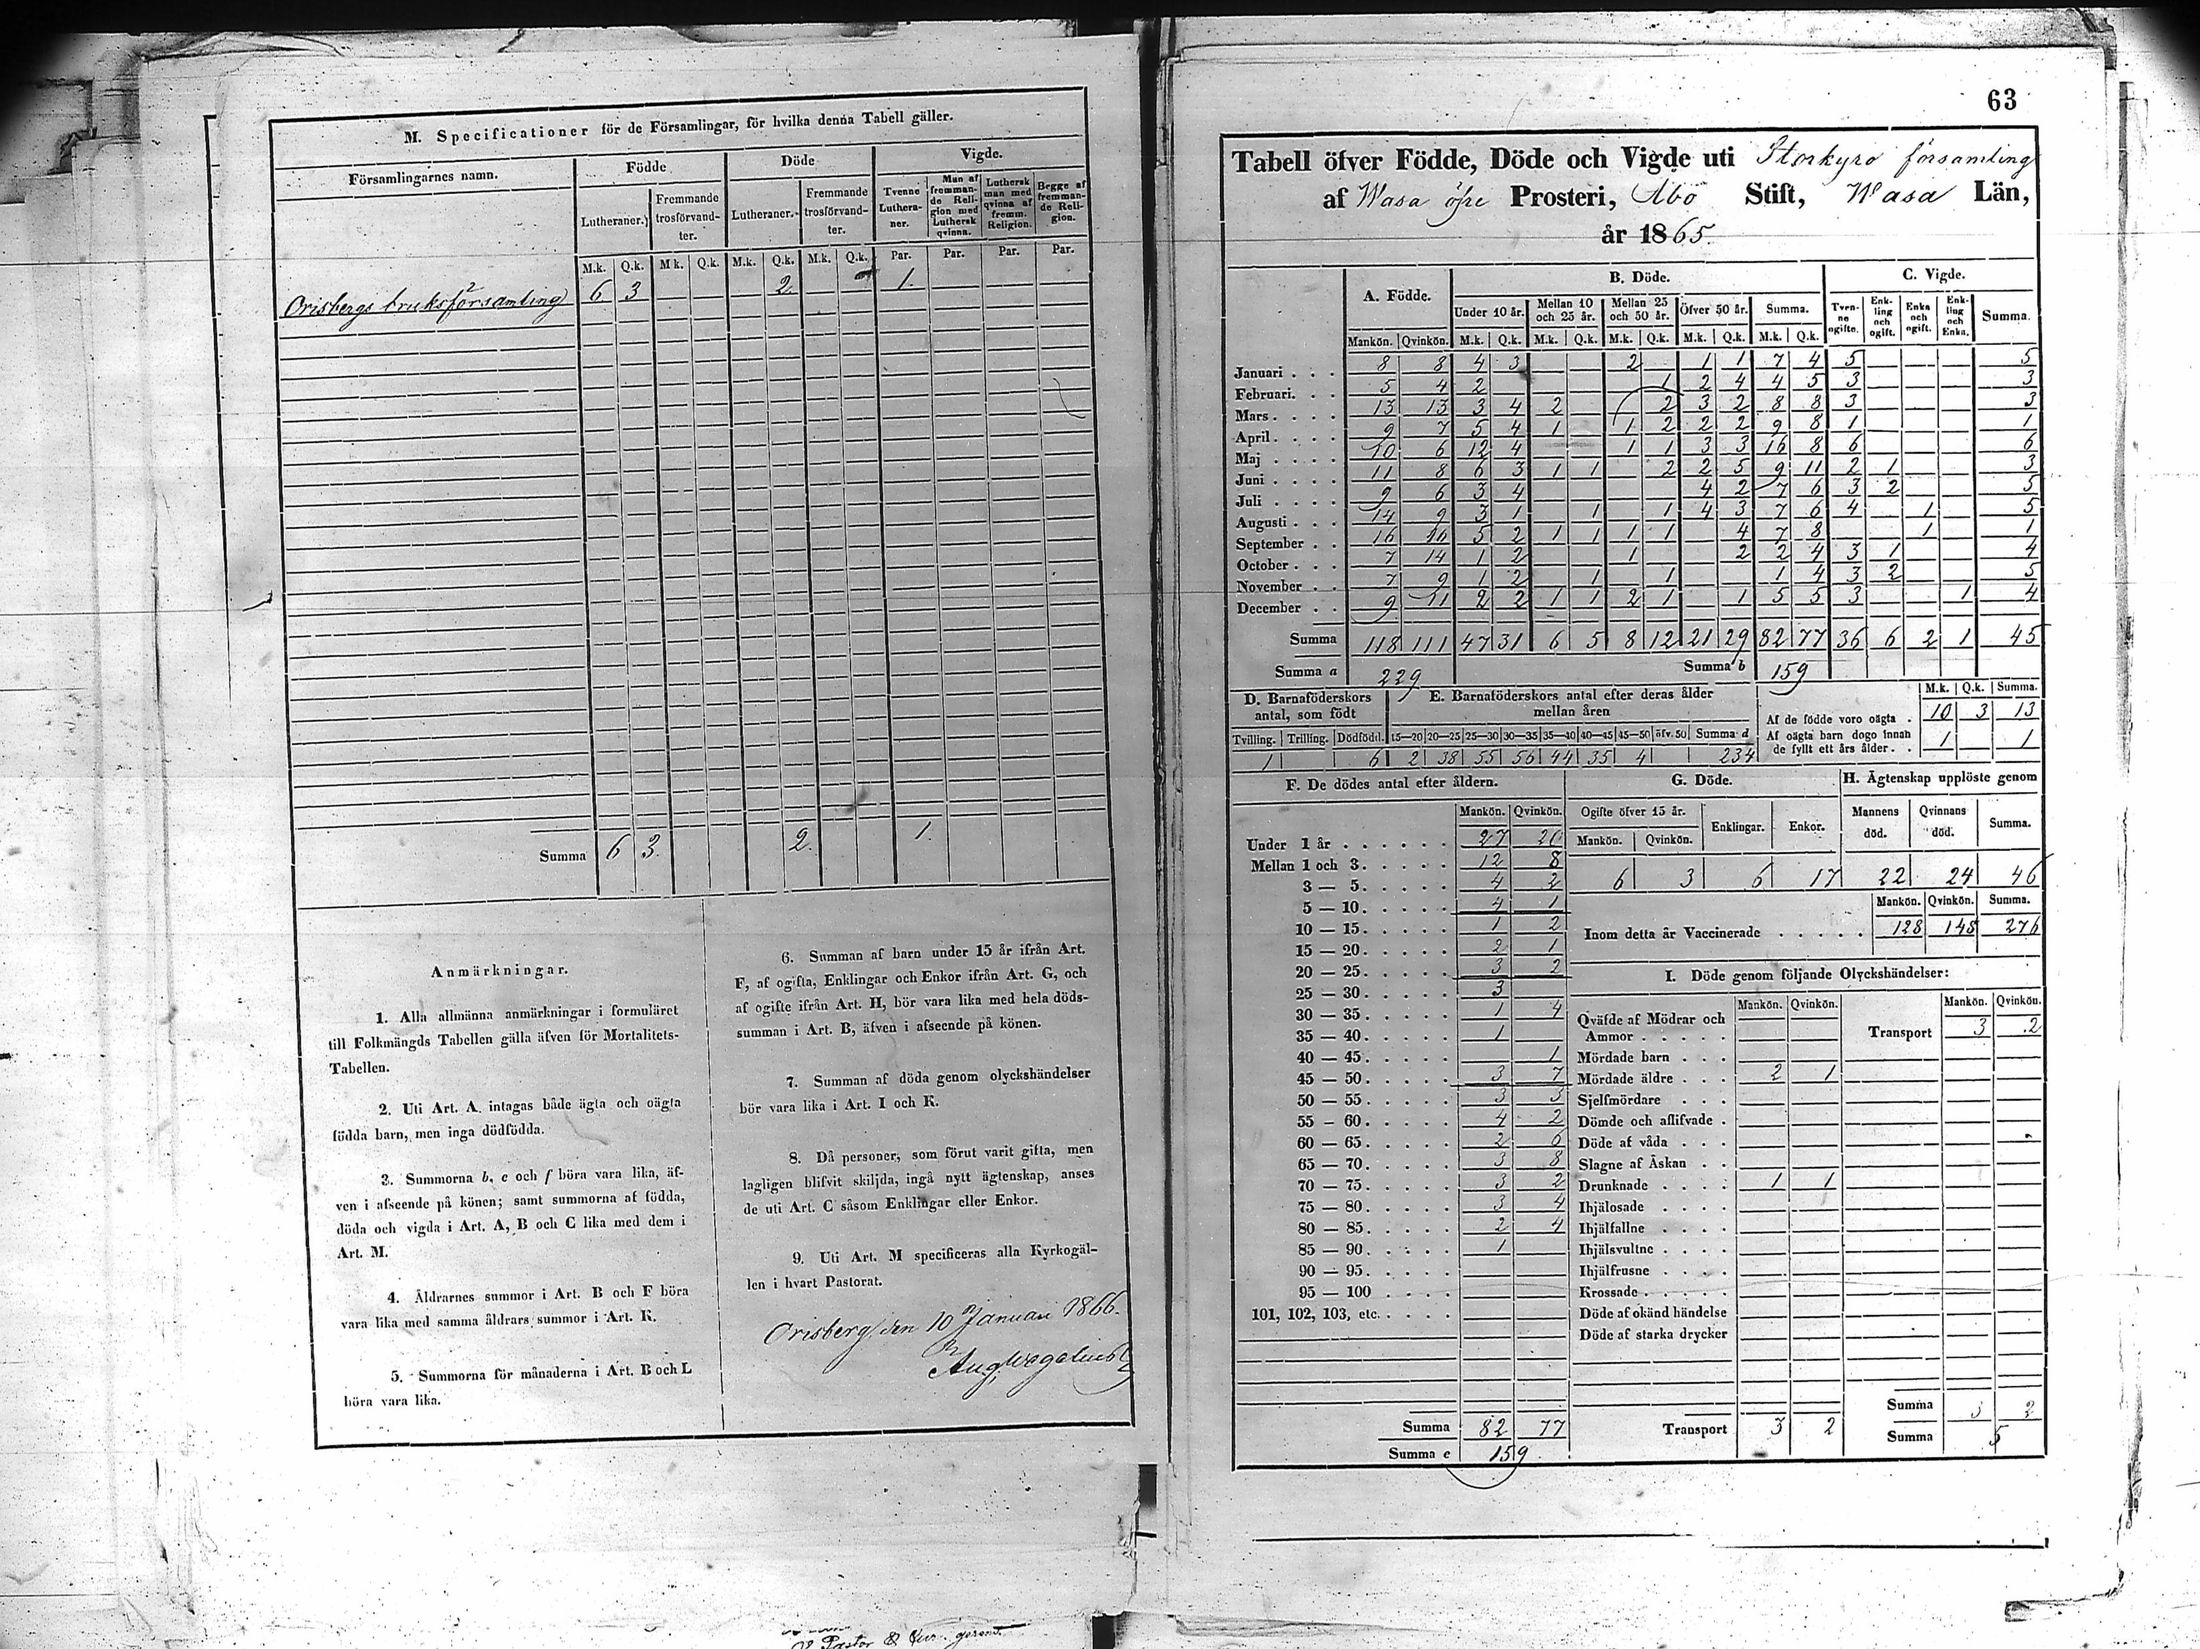 M. Specificationer för de Församlingar, för hvilka denna Tabell gäller.
Församlingarnes namn. Födde Döde Vigde.
Lutheraner. Fremmande trosförvandter. Lutheraner. Fremmande trosförvandter. Tvenne Lutheraner. Man af fremmande Religion med Luthersk qvinna. Luthersk man med qvinna af fremm. Religion. Begge af fremmande Religion.
M.k. Q.k. M.k. Q.k. M.k. Q.k. M.k. Q.k. Par. Par. Par. Par.
Orisbergs bruksförsamling 6 3 2 1.
Summa 6 3. 2. 1.
Anmärkningar.
1. Alla allmänna anmärkningar i formuläret
till Folkmängds Tabellen gälla äfven för Mortalitets-
Tabellen.
2. Uti Art. A. intagas både ägta och oägta
födda barn, men inga dödfödda.
3. Summorna b, e och f böra vara lika, äf-
ven i afseende på könen; samt summorna af födda,
döda och vigda i Art. A, B och C lika med dem i
Art. M.
4. Åldrarnes summor i Art. B och F böra
vara lika med samma åldrars summor i Art. K.
5. Summorna för månaderna i Art. B och L
böra vara lika.
6. Summan af barn under 15 år ifrån Art.
F, af ogifta, Enklingar och Enkor ifrån Art. G, och
af ogifte ifrån Art. H, bör vara lika med hela döds-
summan i Art. B, äfven i afseende på könen.
7. Summan af döda genom olyckshändelser
bör vara lika i Art. I och K.
8. Då personer, som förut varit gifta, men
lagligen blifvit skiljda, ingå nytt ägtenskap, anses
de uti Art. C såsom Enklingar eller Enkor.
9. Uti Art. M specificeras alla Kyrkogäl-
len i hvart Pastorat.
Orisberg, den 10 Januari 1866.
63
Tabell öfver Födde, Döde och Vigde uti Storkyro församling
af Wasa öfre Prosteri, Åbo Stift, Wasa Län,
år 1865.
A. Födde. B. Döde. C. Vigde.
Under 10 år. Mellan 10 och 25 år. Mellan 25 och 50 år. Öfver 50 år. Summa. Tvenne ogifte. Enkling och ogift. Enka och ogift. Enkling och Enka. Summa.
Mankön. Qvinkön. M.k. Q.k. M.k. Q.k. M.k. Q.k. M.k. Q.k. M.k. Q.k.
Januari . . . 8 8 4 3 2 1 1 7 4 5 5
Februari. . . 5 4 2 1 2 4 4 5 3 3
Mars . . . . 13 13 3 4 2 2 3 2 8 8 3 3
April . . . . 9 7 5 4 1 1 2 2 2 9 8 1 1
Maj . . . . 10 6 12 4 1 1 3 3 16 8 6 6
Juni . . . . 11 8 6 3 1 1 2 2 5 9 11 2 1 3
Juli . . . . 9 6 3 4 4 2 7 6 3 2 5
Augusti . . . 14 9 3 1 1 1 4 3 7 6 4 1 5
September . . 16 16 5 2 1 1 1 1 4 7 8 1 1
October . . . 7 14 1 2 1 2 2 4 3 1 4
November . . 7 9 1 2 1 1 1 4 3 2 5
December . . 9 11 2 2 1 1 2 1 1 5 5 3 1 4
Summa 118 111 47 31 6 5 8 12 21 29 82 77 36 6 2 1 45
Summa a 229 Summa b 159
D. Barnaföderskors antal, som född E. Barnaföderskors antal efter deras ålder mellan åren M.k. Q.k. Summa.
Af de födde voro oägta . 10 3 13
Af oägta barn dogo innan de fyllt ett års ålder . . 1 1
Tvilling. Trilling. Dödfödd. 15—20 20—25 25—30 30—35 35—40 40—45 45—50 öfv. 50 Summa d
1 6 2 38 55 56 44 35 4 234
F. De dödes antal efter åldern. G. Döde. H. Ägtenskap upplöste genom
Mankön. Qvinkön. Ogifte öfver 15 år. Enklingar. Enkor. Mannens död. Qvinnans död. Summa.
Mankön. Qvinkön.
6 3 6 17 22 24 46
Mankön. Qvinkön. Summa.
Inom detta år Vaccinerade . . . . . 128 148 276
Under 1 år . . . . . . 27 20
Mellan 1 och 3. . . . . 12 8
3 — 5. . . . . 4 2
5 — 10. . . . . 4 1
10 — 15. . . . . 1 2
15 — 20. . . . . 2 1
20 — 25. . . . . 3 2
25 — 30. . . . . 3
30 — 35. . . . . 1 4
35 — 40. . . . . 1
40 — 45. . . . . 1
45 — 50. . . . . 3 7
50 — 55. . . . . 3 3
55 — 60. . . . . 4 2
60 — 65. . . . . 2 6
65 — 70. . . . . 3 8
70 — 75. . . . . 3 2
75 — 80. . . . . 3 4
80 — 85. . . . . 2 4
85 — 90. . . . . 1
90 — 95. . . . .
95 — 100 . . . .
101, 102, 103, etc. . . . .
Summa 82 77
Summa e 159
I. Döde genom följande Olyckshändelser:
Mankön. Qvinkön. Mankön. Qvinkön.
Qväfde af Mödrar och Ammor . . . . . Transport 3 2
Mördade barn . . .
Mördade äldre . . . 2 1
Sjelfmördare . . .
Dömde och aflifvade .
Döde af våda . . .
Slagne af Åskan . .
Drunknade . . . . 1 1
Ihjälosade . . . .
Ihjälfallne . . . .
Ihjälsvultne . . . .
Ihjälfrusne . . . .
Krossade . . . . .
Döde af okänd händelse
Döde af starka drycker
Summa 3 2
Transport 3 2 Summa 5